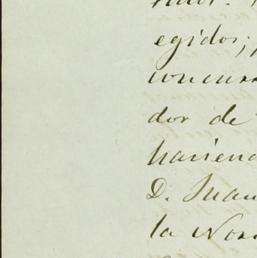 egidos;
concurr
dor de
haciend
D. Juan
la Nor